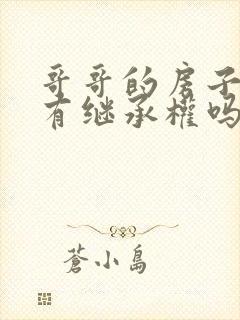 哥哥的房子
有继承權吗
蒼小島